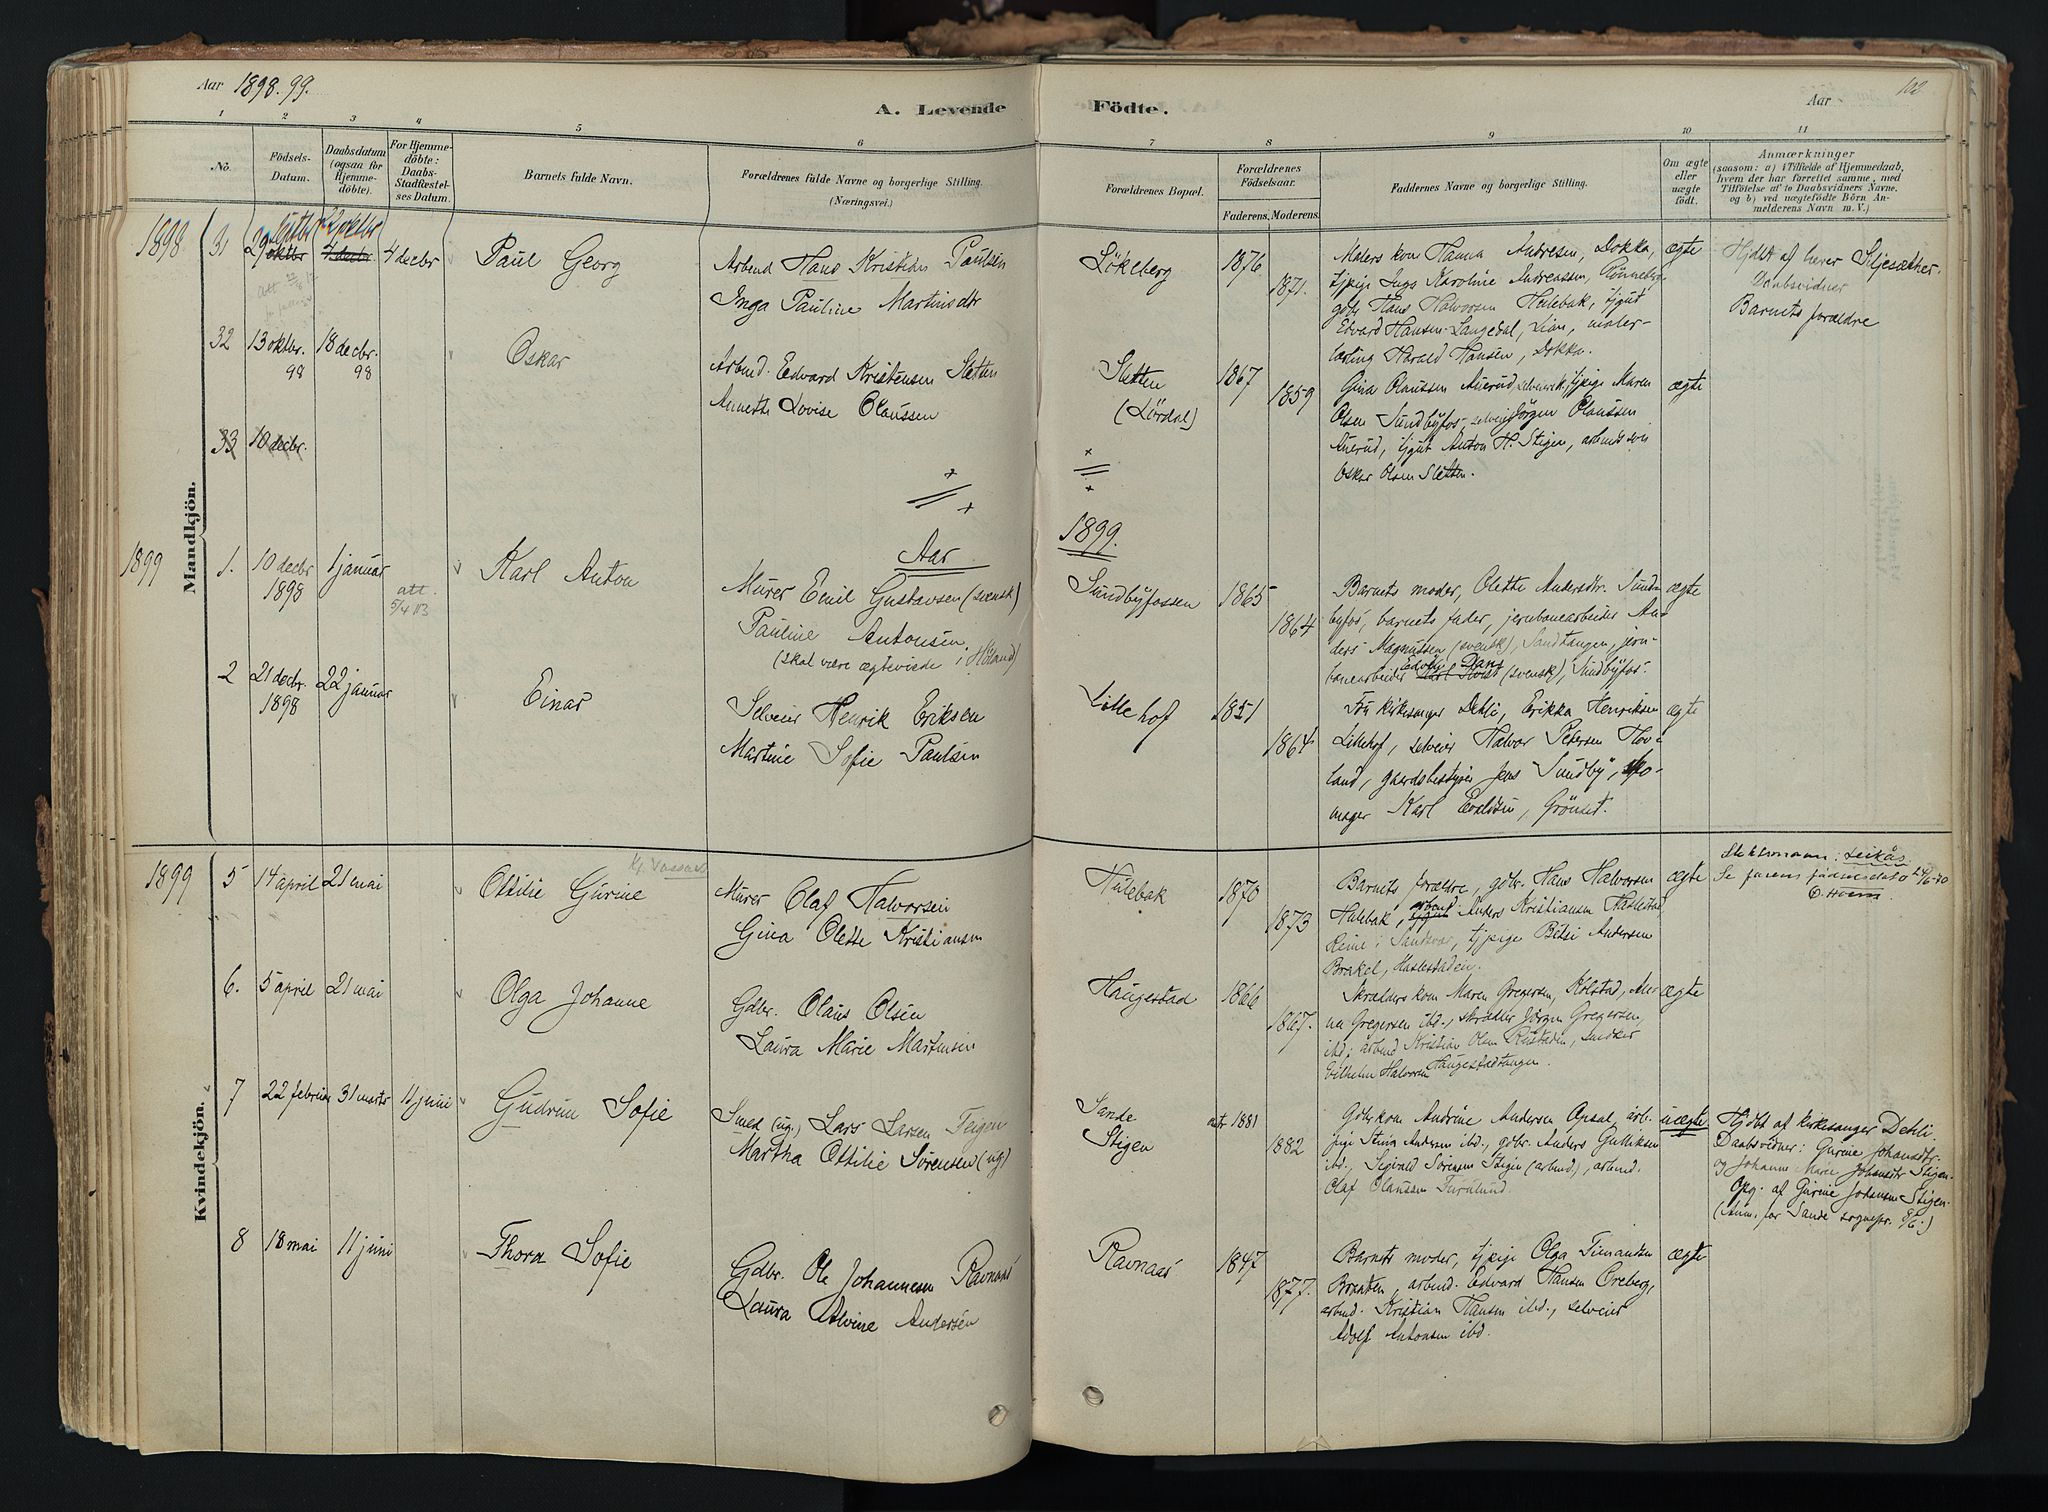 Aar 1898.99.
A. Levende
Födte.
Aar
102
1 2 3 4 5 6 7 8 9 10 11
No.
Födsels-
Datum.
Daabsdatum
(ogsaa for
Hjemme-
döbte).
For Hjemme-
döbte:
Daabs-
Stadfæstel-
ses Datum.
Barnets fulde Navn.
Forældrenes fulde Navne og borgerlige Stilling.
(Næringsvei.)
Forældrenes Bopæl.
Forældrenes
Födselsaar.
Faderens. Moderens.
Faddernes Navne og borgerlige Stilling.
Om ægte
eller
uægte
født.
Anmærkninger
(saasom: a) i Tilfælde af Hjemmedaab,
hvem der har forrettet samme, med
Tilföielse af to Daabsvidners Navne.
og b) ved uægtefödte Börn An-
melderens Navn m. V.)
Mandkjön.
1898
29 oktbr
4 decbr
4 decbr
Paul Georg
Arbmd Hans Kristian Paulsen
Inga Pauline Martinsdtr
Lökeberg
1876
1871.
Malers kon Hanna Andresen, Dokka,
tjpige Inga Karoline Andreassen, Rönneberg
gdbr Hans Halvorsen Hulebak, tjgut
Edvard Hansen Langedal, Lian, maler-
lærling Harald Hansen, Dokka.
ægte
Hjdbt af lærer Siljesæther.
Daabsvidner
Barnets forældre
32
13 oktbr.
98
18 decbr.
98
Oskar
Arbmd. Edvard Kristensen Sletten
Annette Lovise Olaussen
Sletten
(Lördal)
1867
1859
Gina Olaussen Auerud, selveierk, tjpige Maren
Olsen Sundbyfos, selveier Jörgen Olaussen
Auerud, tjgut Anton H. Stigen, arbmds sön
Oskar Olsen Sletten.
ægte
33
10 decbr.
Aar
1899.
1899
1.
10 decbr
1898
1 januar
att.
5/4 113
Karl Anton
Murer Emil Gustavsen (svensk)
Pauline Antonsen
(skal være ægteviede i Höland)
Sundbyfossen
1865
1864
Barnets moder, Olette Andersdtr. Sund-
byfos, barnets fader, jernbanearbeider An-
ders Magnussen (svensk), Sandtangen, jern-
banearbeider (svensk), Sundbyfos.
ægte
2
21 decbr.
1898
22 januar
Einar
Selveier Henrik Eriksen
Martine Sofie Paulsen
Lille hof
1851
1864
Fru kirkesanger Dehli, Erikka Henriksen
Lillehof, selveier Halvor Petersen Hov-
land, gaardsbestyrer Jens Sundby, sko-
mager Karl Evaldsen, Grönset.
ægte
Kvindekjön.
1899
5
14 april
21 mai
Ottilie Gurine
Murer Olaf Halvorsen
Gina Olette Kristiansen
Hulebak
1870
1873
Barnets forældre, gdbr. Hans Halvorsen
Hulebak, arbmd. Anders Kristiansen Haslestad
Reine i Sandsvær, tjpige Betsi Andersen
Brekel, Haslestaden.
ægte
6.
5 april
21 mai
Olga Johanne
Gdbr. Olaus Olsen
Laura Marie Martinsen
Haugestad
1866
1867.
Skrædders kon Maren Gregersen, Kolstad, An-
na Gregersen ibd., skrædder Jörgen Gregersen,
ibd., arbmd Kristian Olsen Rustaden, snedker
Vilhelm Halvorsen Haugestadtangen.
ægte
7
22 februar
31 marts
11 juni
Gudrun Sofie
Smed (ug.) Lars Larsen Teigen
Martha Ottilie Sørensen (ug)
Sande
Stigen
1881
1882
Gdbrkon Andrine Andersen Apsal, arb.
pige Stina Andersen ibd., gdbr. Anders Gulliksen
ibd., Sigvald Sörensen Stigen (arbmd), arbmd.
Olaf Olaussen Furulund.
uægte
Hjdbt af kirkesanger Dehli.
Daabsvidner: Gurine Johansdtr.
og Johanne Marie Johansdtr Stigen.
Opg: af Gurine Johansen Stigen.
(Anm. for Sande sognepr. 8/6.)
8
18 mai
11 juni
Thora Sofie
Gdbr. Ole Johannesen Ravnaas
Laura Alvine Andersen
Ravnaas
1847
1877.
Barnets moder, tjpige Olga Timandsen
Braaten, arbmd. Edvard Hansen Oreberg,
arbmd. Kristian Hansen ibd., selveier
Adolf Antonsen ibd.
ægte